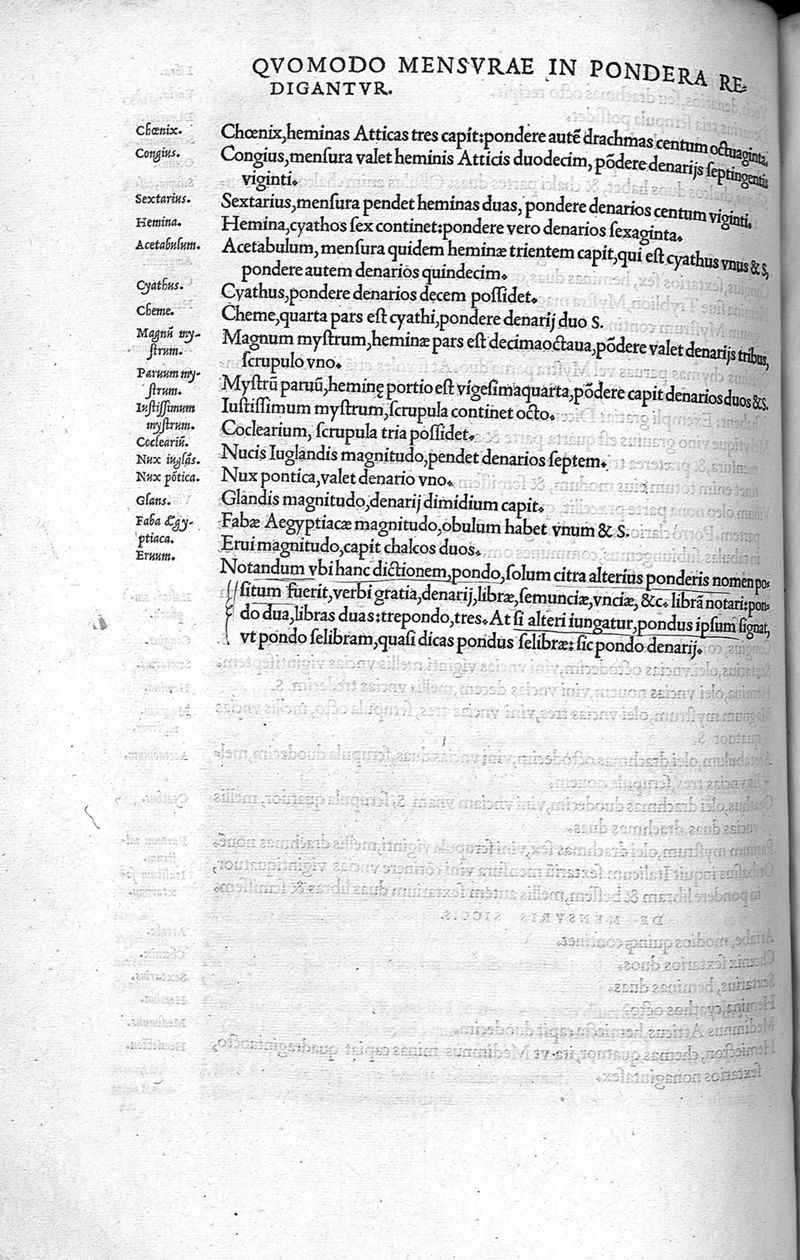 QVOMODO MENSVRAE IN PONDERA RE-
DIGANTVR.
Chœnix.
Chœnix,heminas Atticas tres capit:pondere autẽ drachmas centum octuaginta.
Congius.
Congius,menſura valet heminis Atticis duodecim, põdere denarijs ſeptingentis
viginti.
Sextarius.
Sextarius,menſura pendet heminas duas, pondere denarios centum viginti.
Hemina.
Hemina,cyathos ſex continet:pondere vero denarios ſexaginta.
Acetabulum.
Acetabulum, menſura quidem heminæ trientem capit,qui eſt cyathus vnus & S,
pondere autem denarios quindecim.
Cyathus.
Cyathus,pondere denarios decem poſſidet.
Cheme.
Cheme,quarta pars eſt cyathi,pondere denarij duo S.
Magnũ my-
ſtrum.
Magnum myſtrum,heminæ pars eſt decimaoctaua,põdere valet denarijs tribus,
ſcrupulo vno.
Paruum my-
ſtrum.
Myſtrũ paruũ,heminę portio eſt vigeſimaquarta,põdere capit denarios duos & S.
Iuſtiſſimum
myſtrum.
Iuſtiſſimum myſtrum,ſcrupula continet octo.
Cocleariũ.
Coclearium, ſcrupula tria poſſidet.
Nux iuglãs.
Nucis Iuglandis magnitudo,pendet denarios ſeptem.
Nux põtica.
Nux pontica,valet denario vno.
Glans.
Glandis magnitudo,denarij dimidium capit.
Faba Ægy-
ptiaca.
Fabæ Aegyptiacæ magnitudo,obulum habet vnum & S.
Eruum.
Erui magnitudo,capit chalcos duos.
Notandum vbi hanc dictionem,pondo,ſolum citra alterius ponderis nomen po-
ſitum fuerit,verbi gratia,denarij,libræ,ſemunciæ,vnciæ, &c. librã notari:pon-
do dua,libras duas:trepondo,tres. At ſi alteri iungatur,pondus ipſum ſignat,
vt pondo ſelibram,quaſi dicas pondus ſelibræ: ſic pondo denarij.